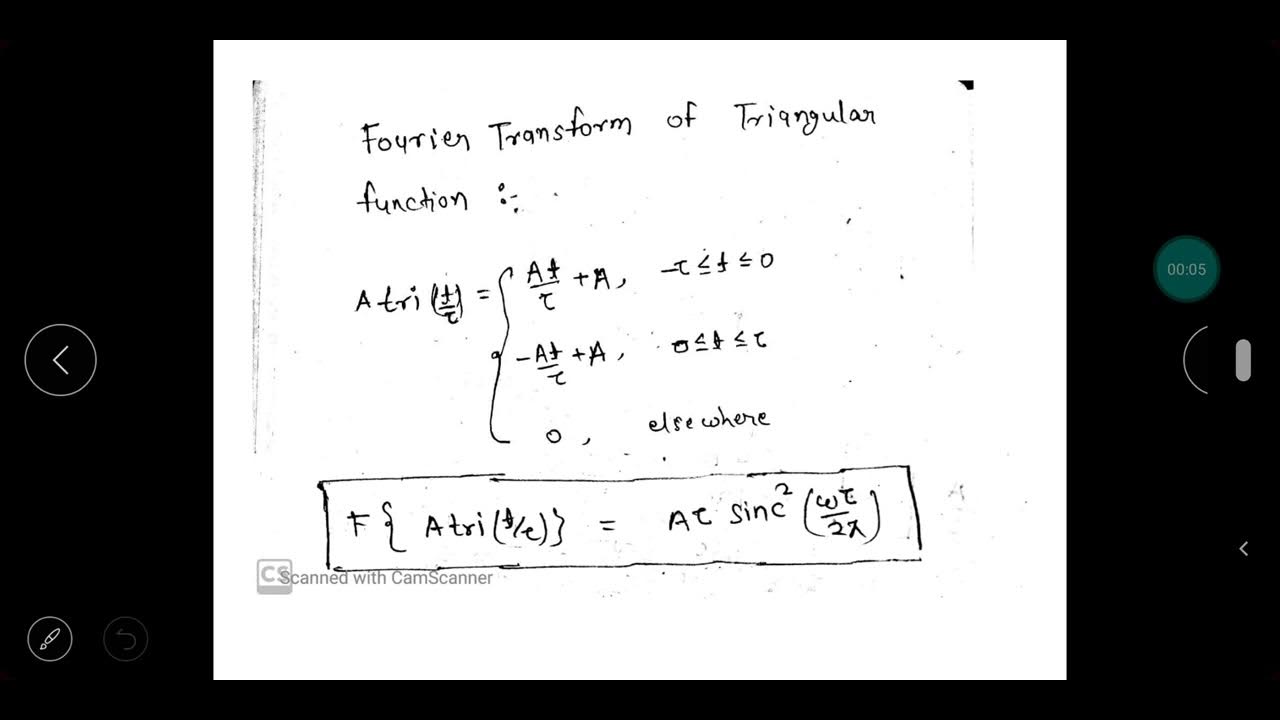 Fourier Transform of Triangular
function :-
A tri(t/τ) = { At/τ + A, -τ ≤ t ≤ 0
-At/τ + A, 0 ≤ t ≤ τ
0, elsewhere
F{ A tri(t/τ)} = Aτ sinc²(ωτ/2π)
CS Scanned with CamScanner
00:05